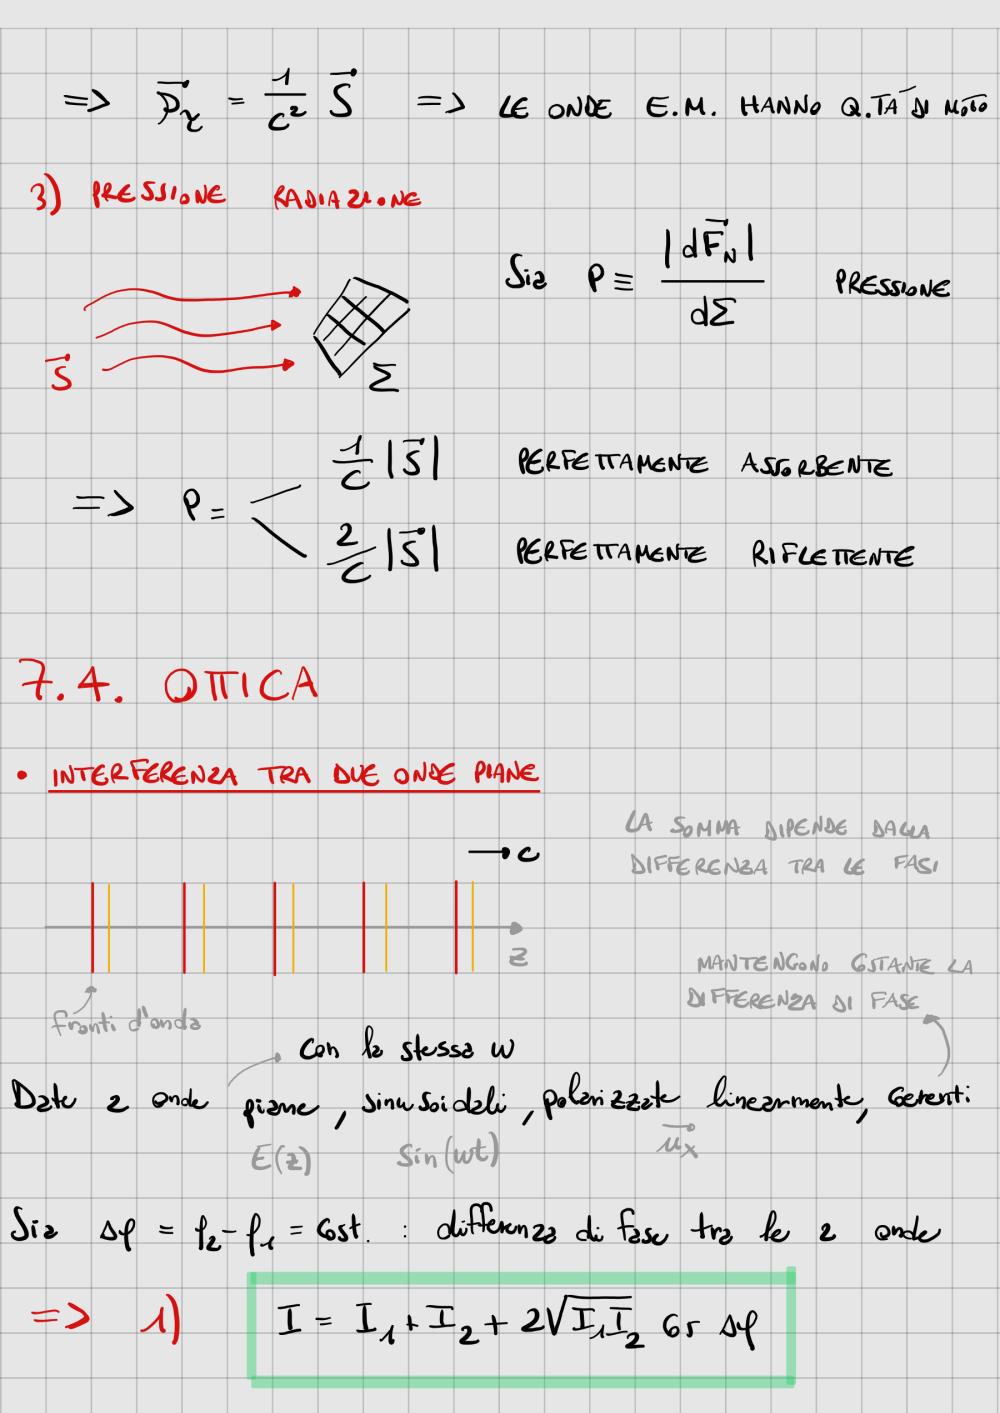 => p⃗_r = 1/c² S⃗ => LE ONDE E.M. HANNO Q.TA' DI MOTO
3) PRESSIONE RADIAZIONE
Sia P ≡ |dF⃗_N| / dΣ PRESSIONE
S⃗ Σ
=> P = 1/c |S⃗| PERFETTAMENTE ASSORBENTE
2/c |S⃗| PERFETTAMENTE RIFLETTENTE
7.4. OTTICA
• INTERFERENZA TRA DUE ONDE PIANE
LA SOMMA DIPENDE DALLA
DIFFERENZA TRA LE FASI
→ c
z
MANTENGONO COSTANTE LA
DIFFERENZA DI FASE
fronti d'onda
con la stessa ω
Date 2 onde piane, sinusoidali, polarizzate linearmente, coerenti
E(z) sin(ωt) u⃗_x
Sia Δφ = φ₂-φ₁ = cost. : differenza di fase tra le 2 onde
=> 1) I = I₁ + I₂ + 2√(I₁I₂) cos Δφ